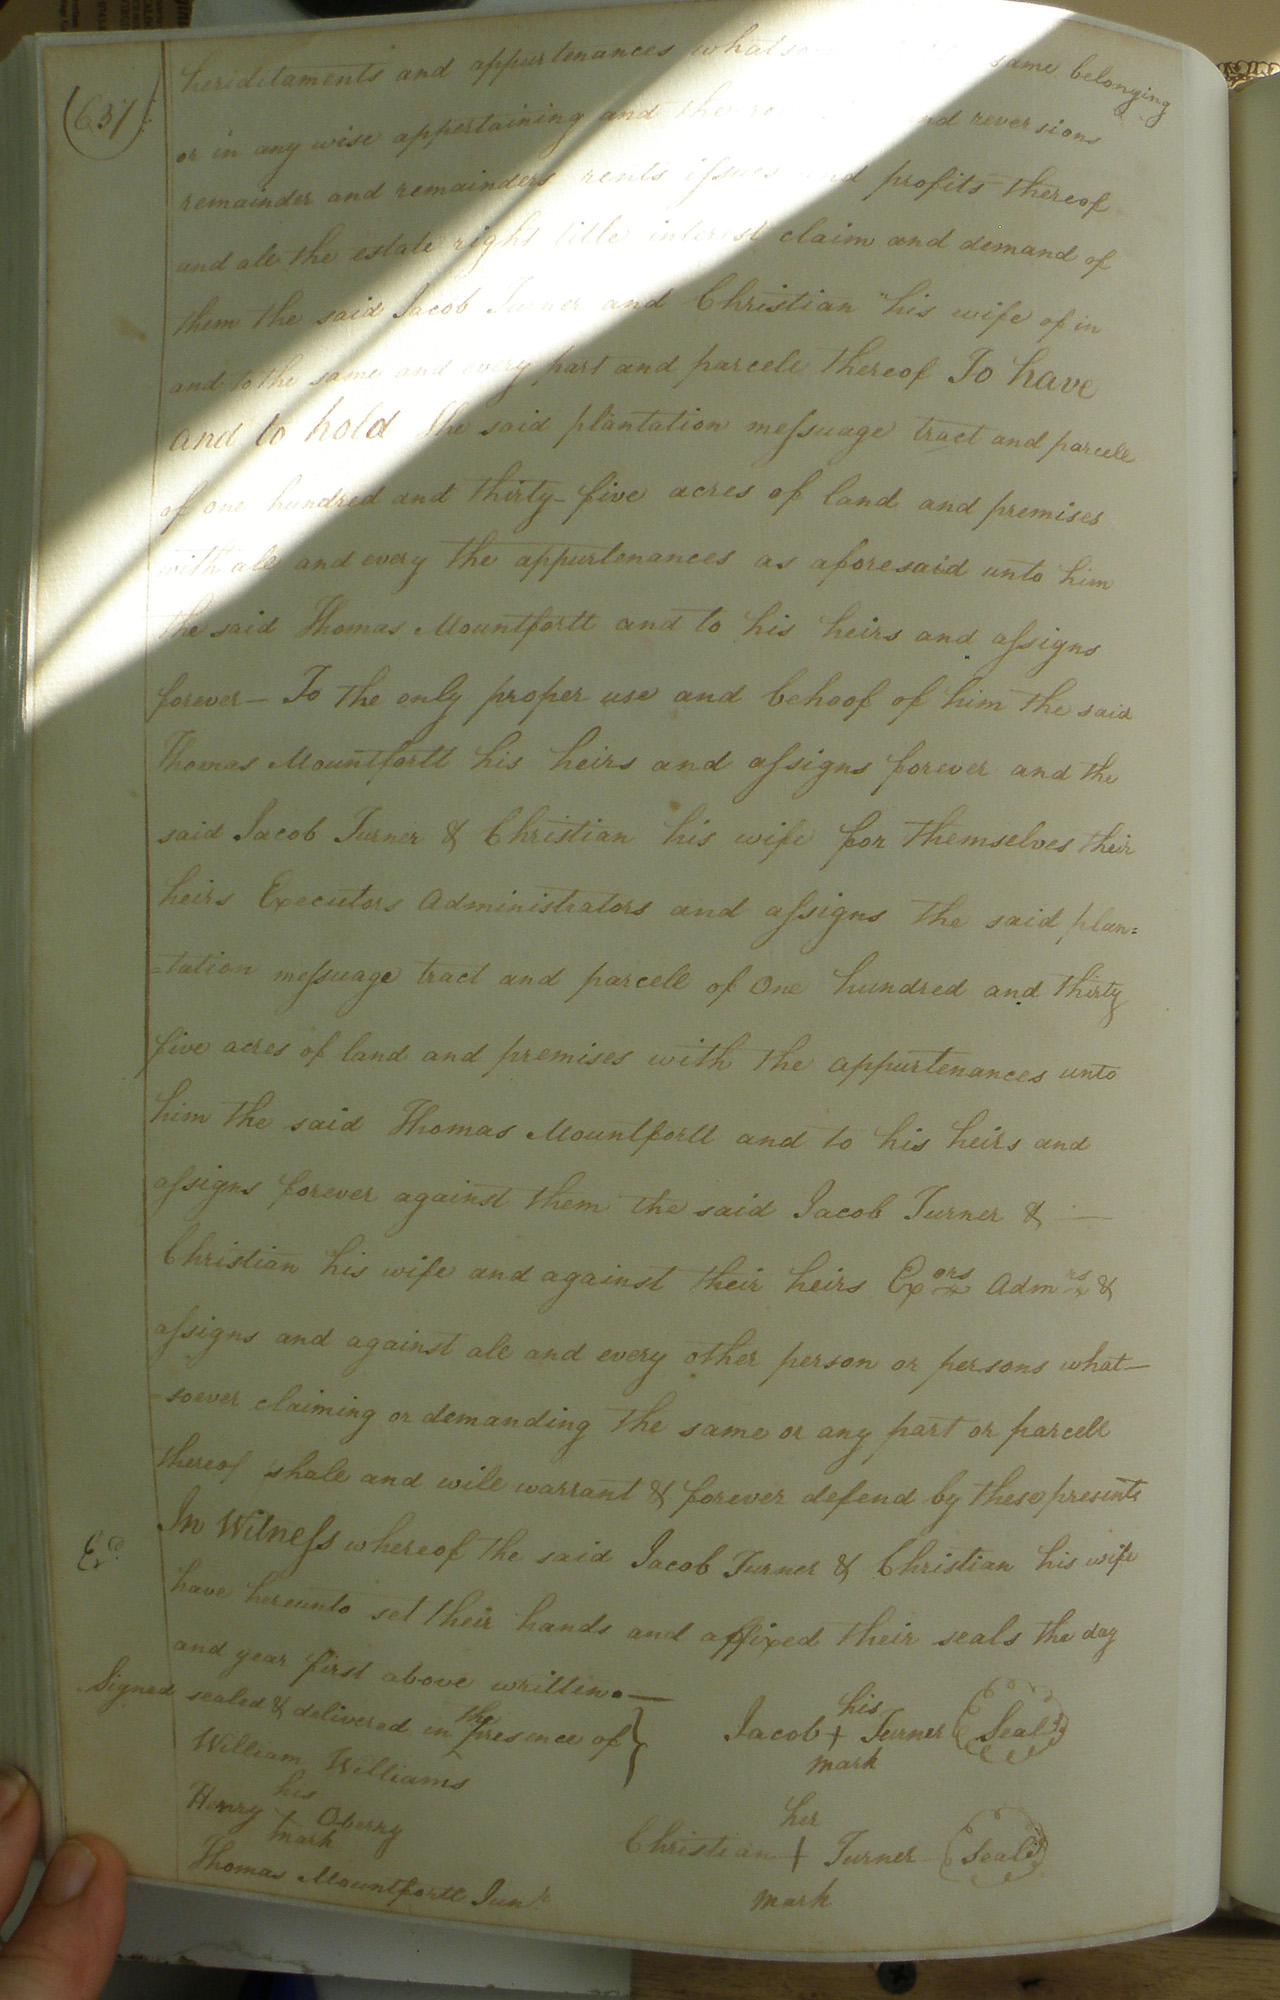 (631)
heriditaments and appurtenances whatso same belonging
or in any wise appertaining and the re nd reversions
remainder and remainders rents issues and profits thereof
and all the estate right title interest claim and demand of
them the said Jacob Turner and Christian his wife of in
and to the same and every part and parcell thereof To have
and to hold the said plantation messuage tract and parcell
of one hundred and thirty-five acres of land and premises
with all and every the appurtenances as aforesaid unto him
the said Thomas Mountfortt and to his heirs and assigns
forever — To the only proper use and behoof of him the said
Thomas Mountfortt his heirs and assigns forever and the
said Jacob Turner & Christian his wife for themselves their
heirs Executors Administrators and assigns the said plan=
=tation messuage tract and parcell of One hundred and thirty
five acres of land and premises with the appurtenances unto
him the said Thomas Mountfortt and to his heirs and
assigns forever against them the said Jacob Turner & —
Christian his wife and against their heirs Exors Admrs &
assigns and against all and every other person or persons what—
-soever claiming or demanding the same or any part or parcell
thereof shall and will warrant & forever defend by these presents
In Witness whereof the said Jacob Turner & Christian his wife
Exd
have hereunto set their hands and affixed their seals the day
and year first above written. —
Signed sealed & delivered in the presence of }
William Williams
his
Henry + Oberry
mark
Thomas Mountfortt Junr
his
Jacob + Turner (Seal)
mark
her
Christian + Turner (Seal)
mark